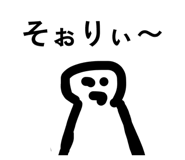 そぉりぃ～